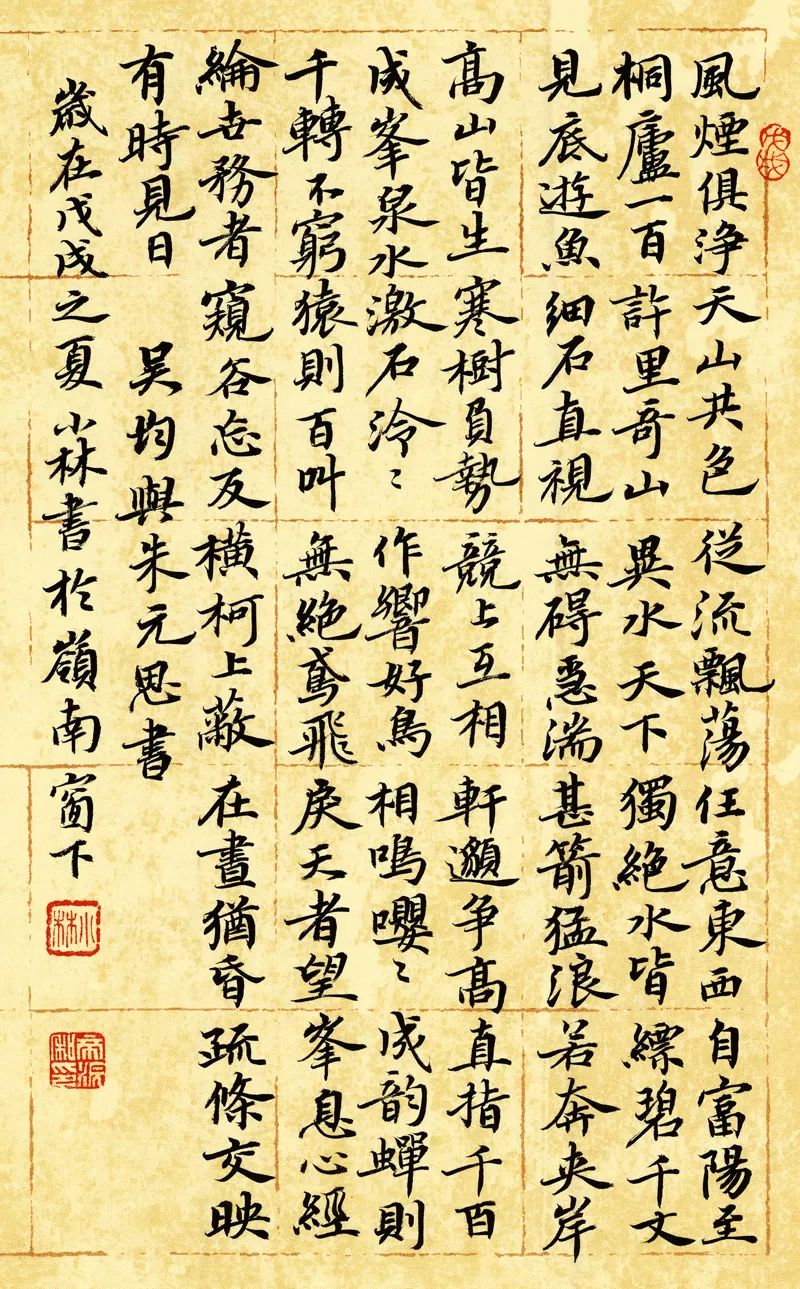 風煙俱浄天山共色從流飄蕩任意東西自富陽至
桐廬一百許里奇山異水天下獨絶水皆縹碧千丈
見底遊魚細石直視無碍急湍甚箭猛浪若奔夾岸
高山皆生寒樹負勢競上互相軒邈争高直指千百
成峯泉水激石泠〻作響好鳥相鳴嚶〻成韵蟬則
千轉不窮猿則百叫無絶鳶飛戾天者望峯息心經
綸世務者窺谷忘反橫柯上蔽在晝猶昏疏條交映
有時見日 吳均與朱元思書
歲在戊戌之夏小林書於嶺南窗下
小林